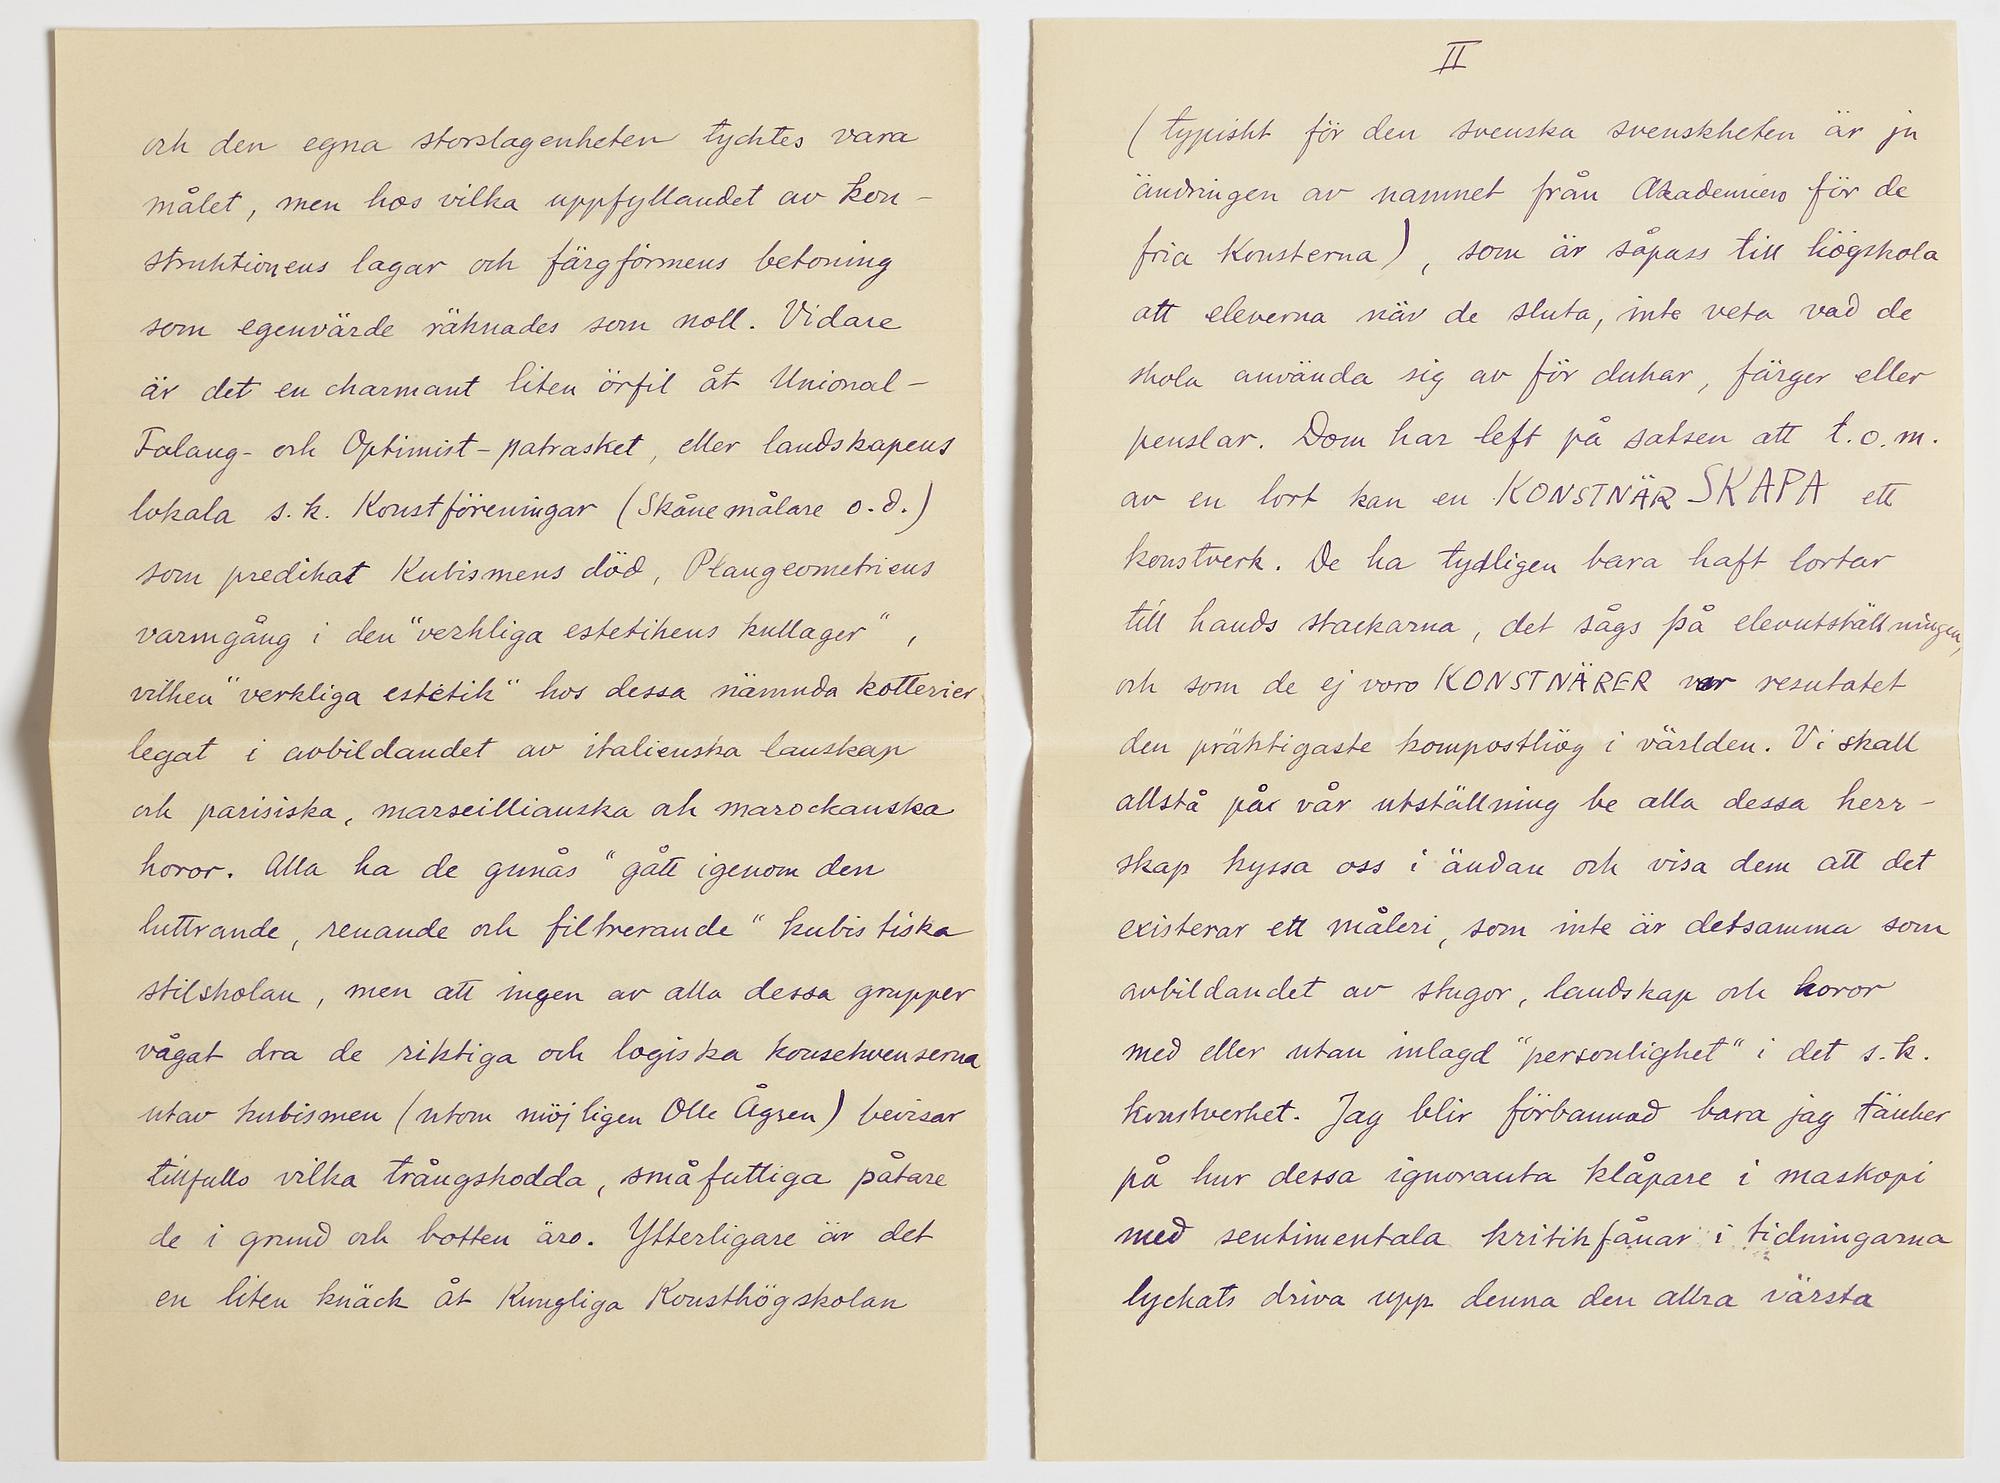 och den egna storslagenheten tycktes vara
målet, men hos vilka uppfyllandet av kon-
struktionens lagar och färgformens betoning
som egenvärde räknades som noll. Vidare
är det en charmant liten örfil åt Unional-
Falang- och Optimist-patrasket, eller landskapens
lokala s.k. Konstföreningar (Skånemålare o.d.)
som predikat Kubismens död, Plangeometriens
varmgång i den "verkliga estetikens kullager",
vilken "verkliga estetik" hos dessa nämnda kotterier
legat i avbildandet av italienska lanskap
och parisiska, marseillianska och marockanska
horor. Alla ha de gunås "gått igenom den
luttrande, renande och filtrerande" kubistiska
stilskolan, men att ingen av alla dessa grupper
vågat dra de riktiga och logiska konsekvenserna
utav kubismen (utom möjligen Olle Ågren) bevisar
tillfullo vilka trångskodda, småfuttiga påtare
de i grund och botten äro. Ytterligare är det
en liten knäck åt Kungliga Konsthögskolan
II
(typiskt för den svenska svenskheten är ju
ändringen av namnet från Akademien för de
fria Konsterna), som är såpass till högskola
att eleverna när de sluta, inte veta vad de
skola använda sig av för dukar, färger eller
penslar. Dom har left på satsen att t.o.m.
av en lort kan en KONSTNÄR SKAPA ett
konstverk. De ha tydligen bara haft lortar
till hands stackarna, det sågs på elevutställningen,
och som de ej voro KONSTNÄRER var resutatet
den präktigaste komposthög i världen. Vi skall
alltså på vår utställning be alla dessa herr-
skap kyssa oss i ändan och visa dem att det
existerar ett måleri, som inte är detsamma som
avbildandet av stugor, landskap och horor
med eller utan inlagd "personlighet" i det s.k.
konstverket. Jag blir förbannad bara jag tänker
på hur dessa ignoranta klåpare i maskopi
med sentimentala kritikfånar i tidningarna
lyckats driva upp denna den allra värsta